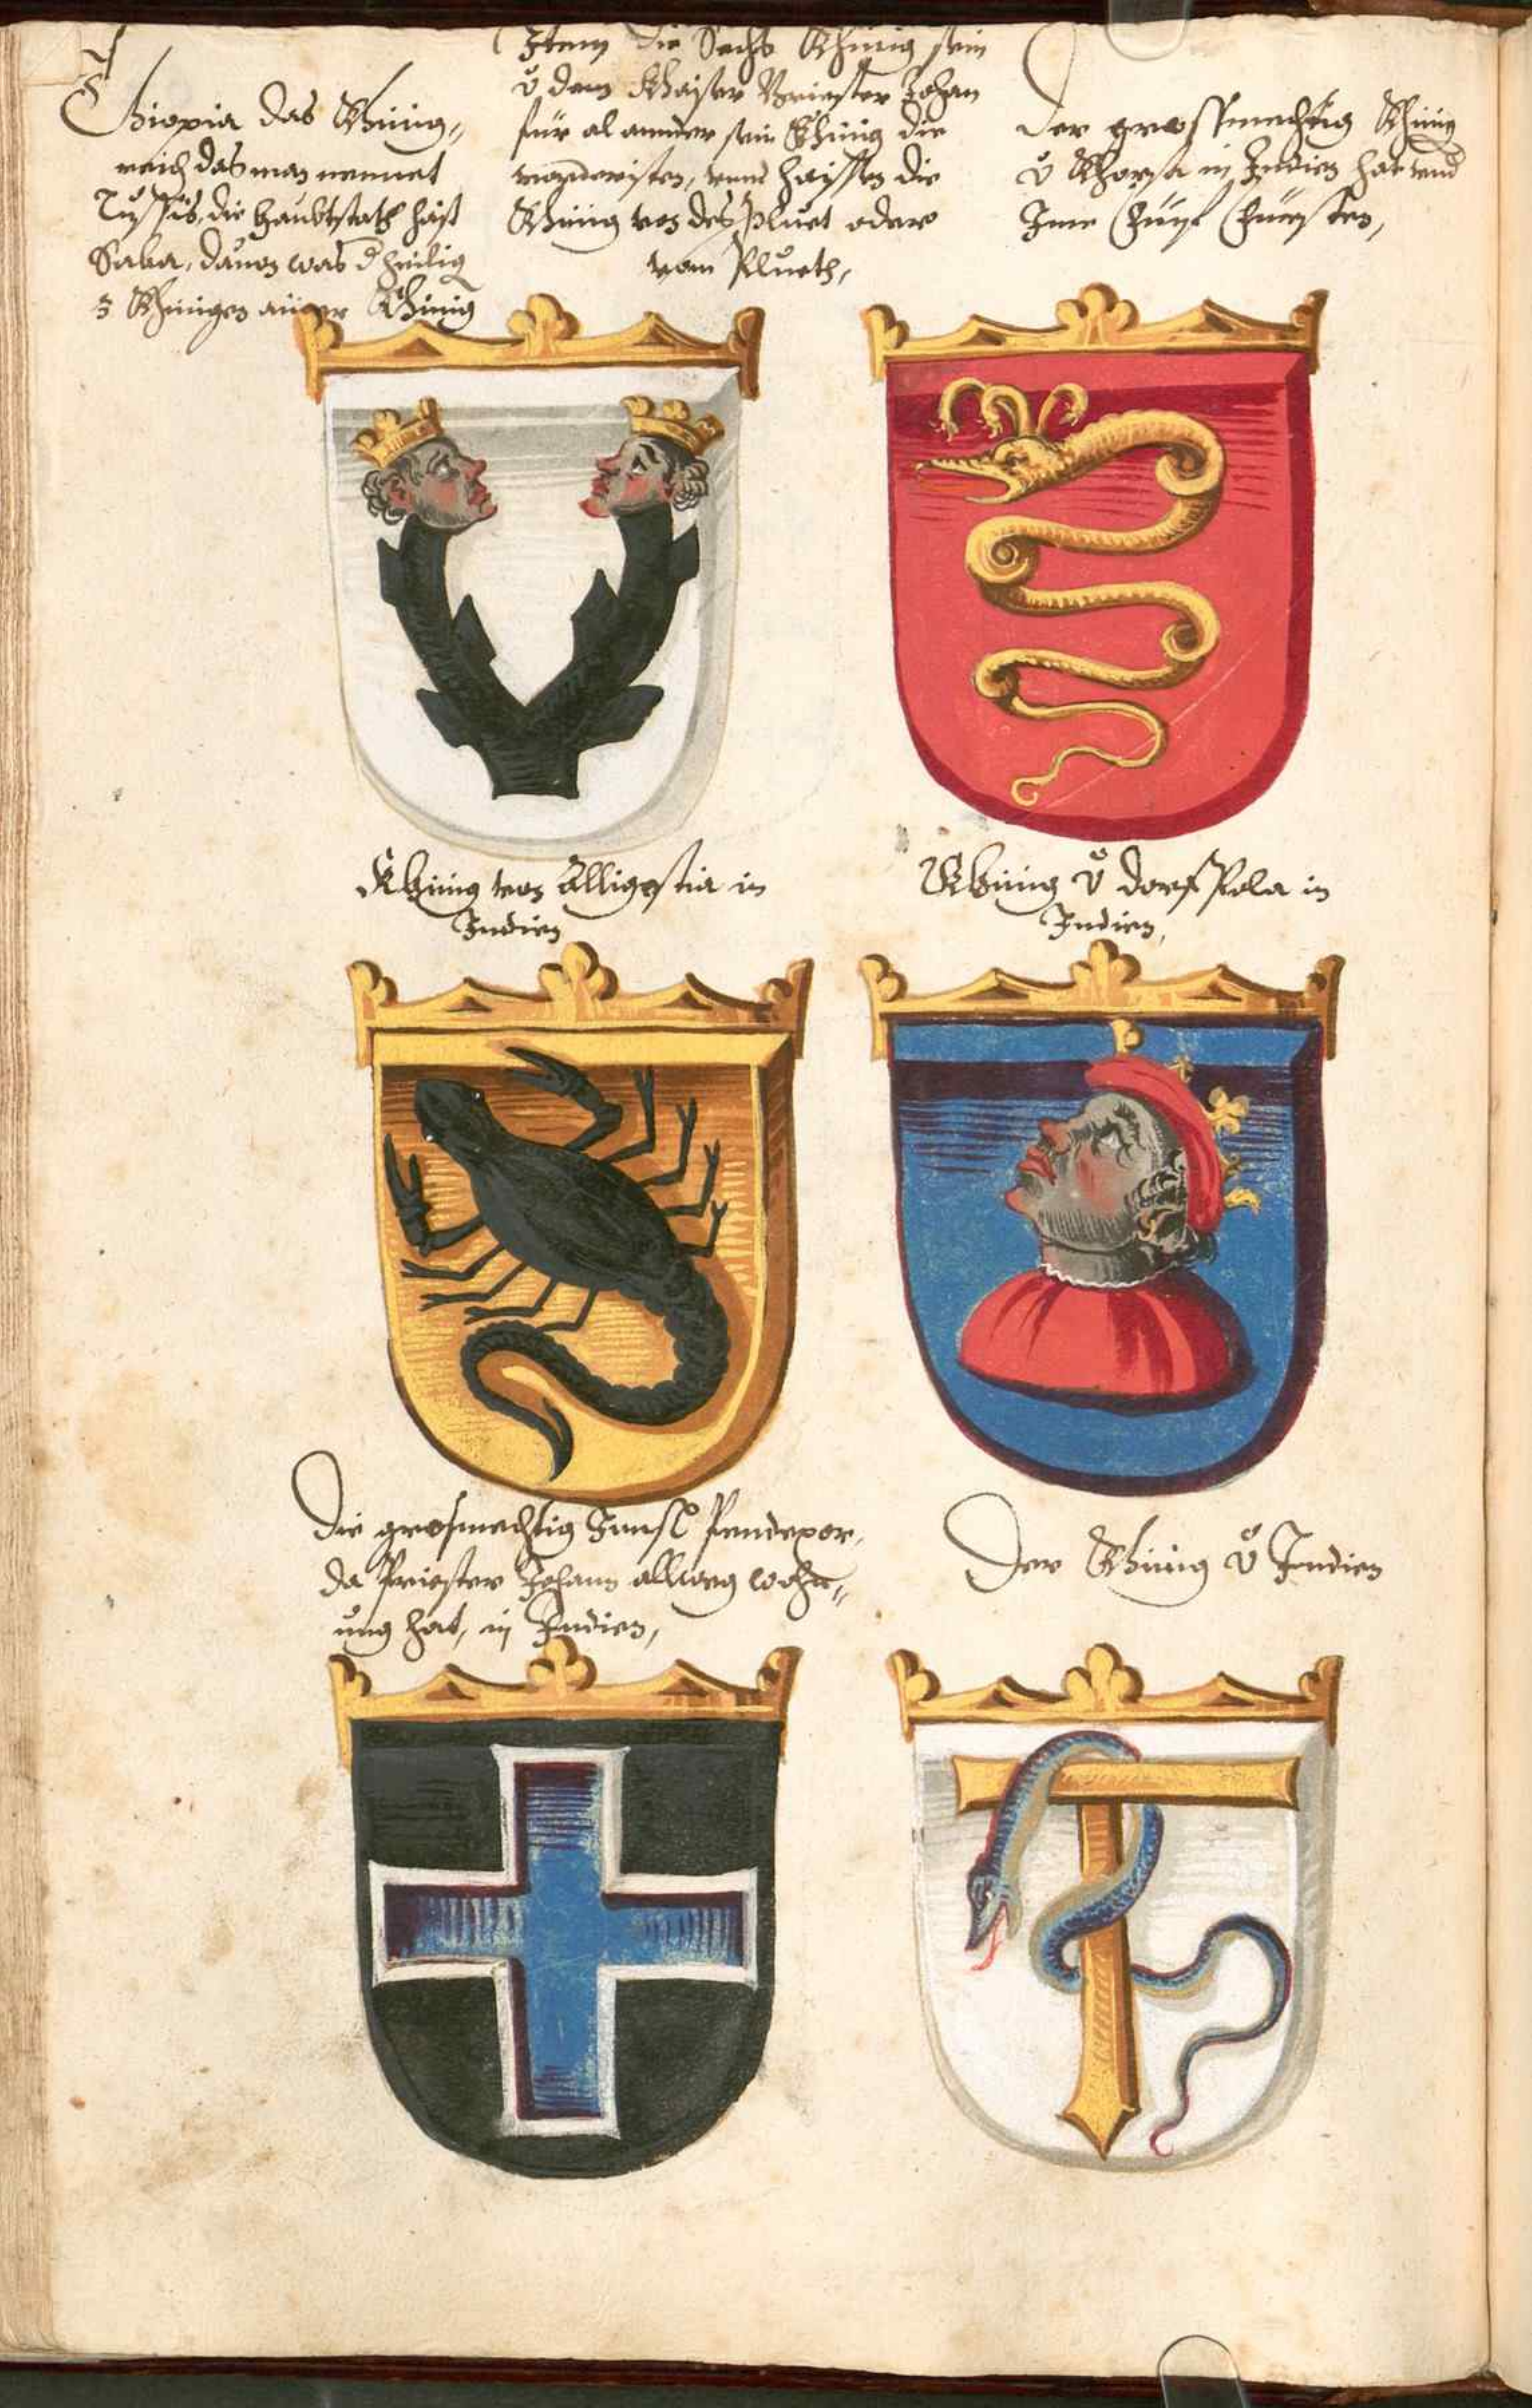 Ethiopia das Khünig,,
reich das man nennet
die Haubtstath haist
Saba, dauon was d heilig
3 Khünigen ainer Khünig
Item die Sechs Khünig sein
v̊ dem Khaiser Briester Johan
für al annder sein Khünig die
vorderisten, vnnd haissen die
Khünig von des Pluet oder
vom Plueth,
Der grossmechtig Khünig
v̊ Khorsa in Indien hat vnnd
Ime Fünf Fürsten,
Khünig von Alligostia in
Indien
Khünig v̊ dorffpola in
Indien,
Die grosmechtig Innsl Pendexor,
da Priester Johann allweg wohn,,
ung hat, in Indien,
Der Khünig v̊ Indien